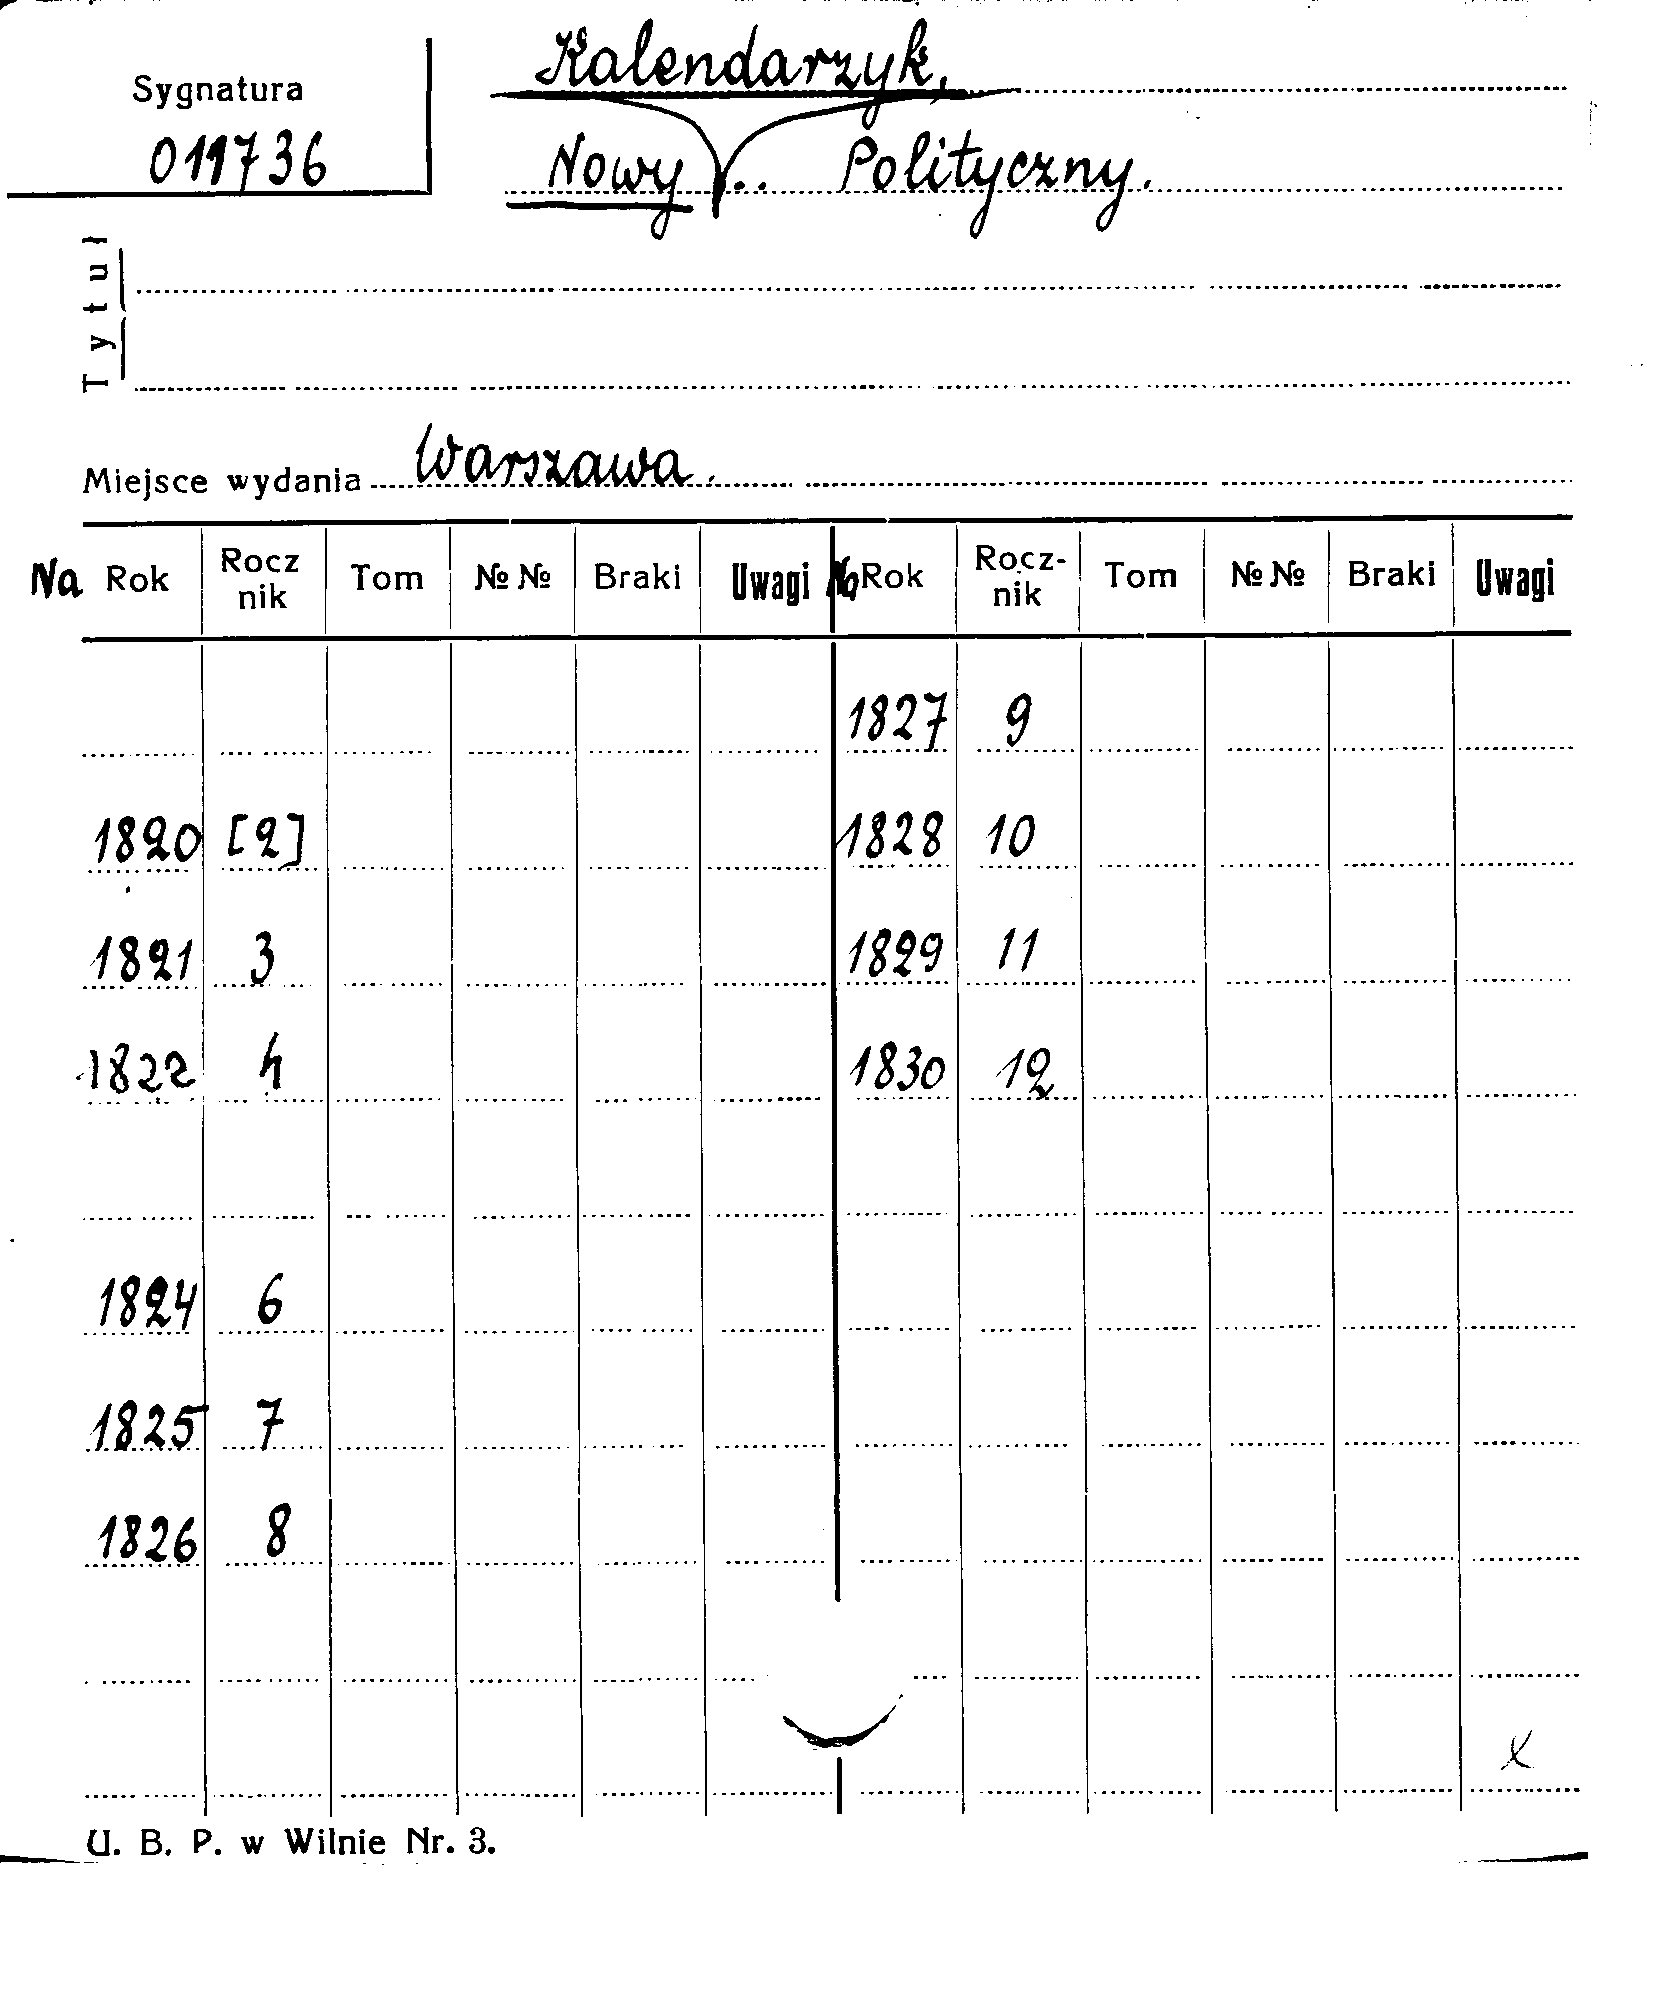 Kalendarzyk,
Sygnatura
011736
Nowy .. Polityczny.
Tytuł
Miejsce wydania Warszawa.
Na Rok Rocz nik Tom №№ Braki Uwagi Na Rok Rocz- nik Tom №№ Braki Uwagi
1827 9
1820 [2] 1828 10
1821 3 1829 11
1822 4 1830 12
1824 6
1825 7
1826 8
x
U. B. P. w Wilnie Nr. 3.